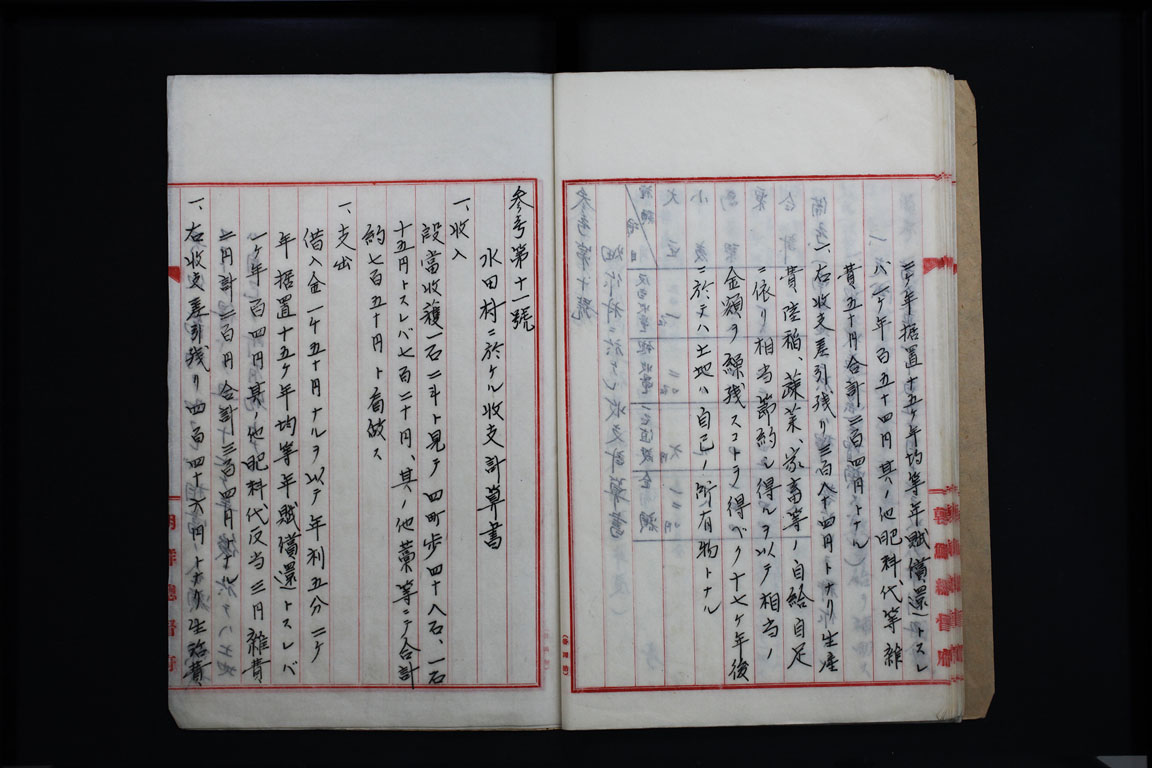 ニケ年据置十五ケ年均等年賦償還トスレ
バ一ケ年百五十四円其ノ他肥料代等雑
費五十円合計二百四円トナル
一、右收支差引残リ三百八十四円トナリ生産
費陸稲、蔬菜、家畜等ノ自給自足
ニ依リ相当節約シ得ルヲ以テ相当ノ
金額ヲ繰残スコトヲ得ベク十七ケ年後
ニ於テハ土地ハ自己ノ所有物トナル
参考第十一號
水田村ニ於ケル收支計算書
一、收入
段當收獲一石二斗ト見テ四町歩四十八石、一石
十五円トスレバ七百二十円、其ノ他藁等ニテ合計
約七百五十円ト看做ス
一、支出
借入金一ケ五十円ナルヲ以テ年利五分二ケ
年据置十五ケ年均等年賦償還トスレバ
一ケ年百四円其ノ他肥料代反当三円雑費
二円計二百円合計三百四円トナル
一、右收支差引残リ四百四十六円トナリ生活費
朝鮮總督府